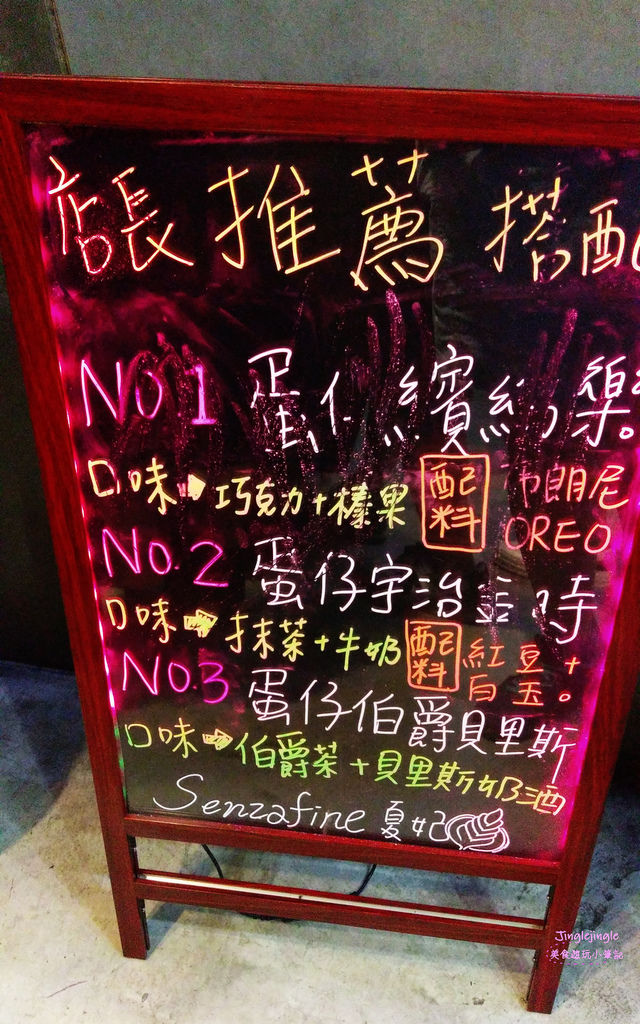 店長推薦搭配
NO.1 蛋仔繽紛樂
口味 巧克力+榛果 配料 布朗尼 OREO
NO.2 蛋仔宇治金時
口味 抹茶+牛奶 配料 紅豆+白玉。
NO.3 蛋仔伯爵貝里斯
口味 伯爵茶+貝里斯奶酒
Senzafine 夏妃
Jinglejingle
美食遊玩小筆記